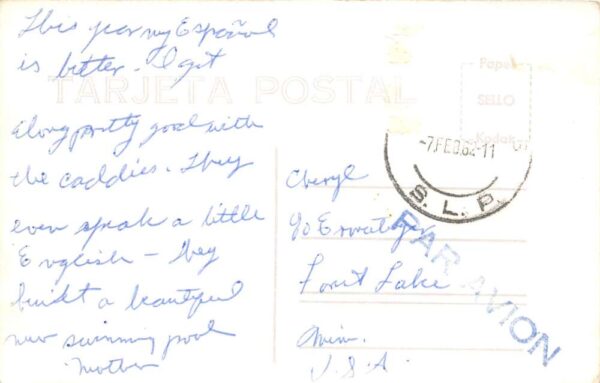 This year my Español
is better. I get
TARJETA POSTAL
along pretty good with
the caddies. They
even speak a little
English - They
built a beautiful
new swimming pool
Mother
Papel
SELLO
Kodak
-7.FEB.62-11
S. L. P.
PAR AVION
Cheryl
c/o
Lake
Minn.
U.S.A.